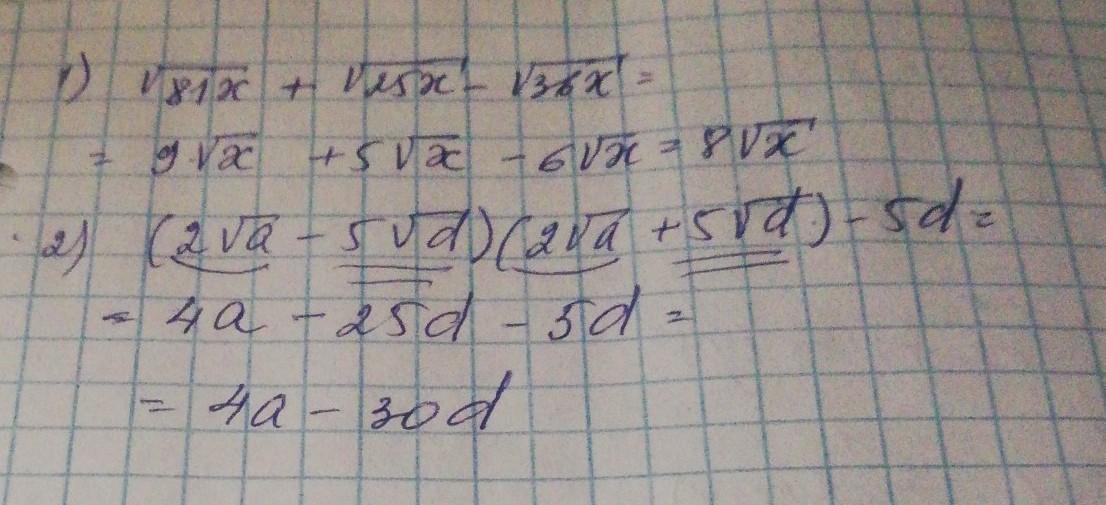 1) √81x + √25x - √36x =
= 9√x + 5√x - 6√x = 8√x
2) (2√a - 5√d)(2√a + 5√d) - 5d =
= 4a - 25d - 5d =
= 4a - 30d